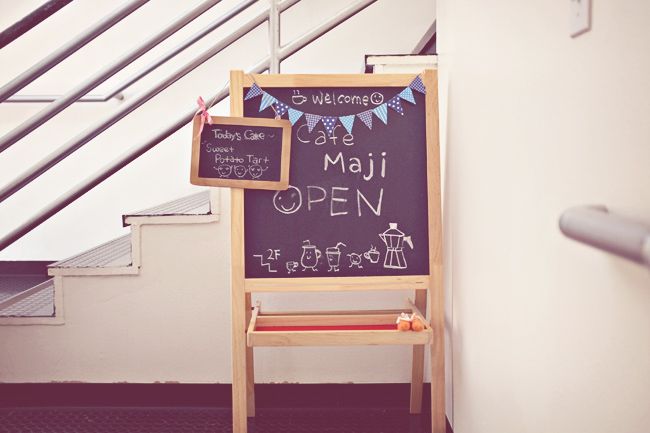 Welcome
Cafe
Maji
OPEN
2F
Today's Cake
Sweet
Potato Tart